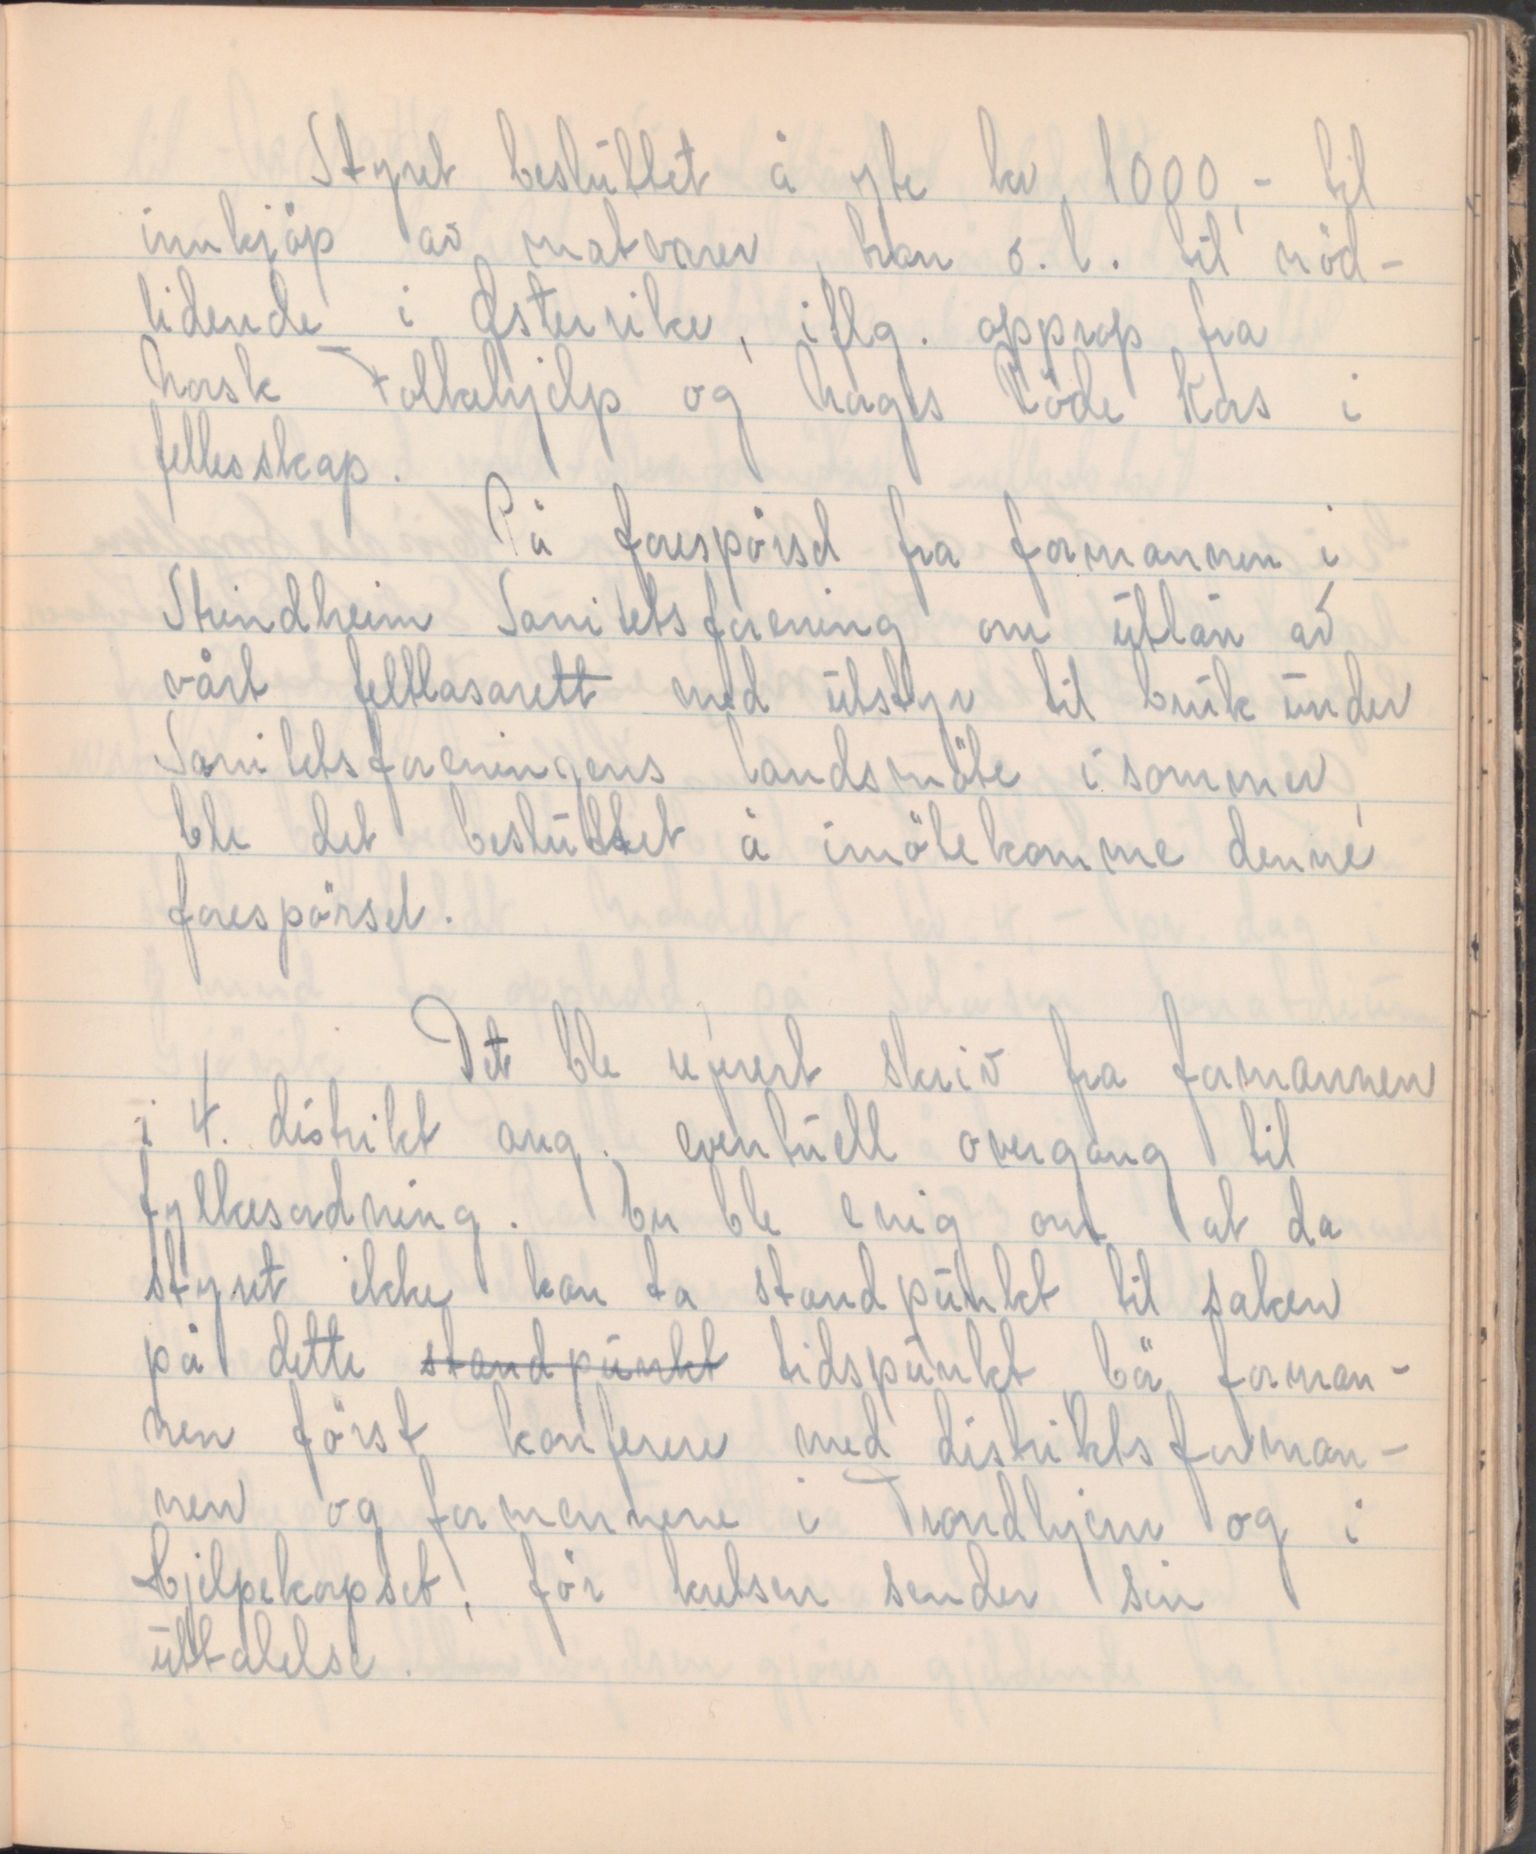 Styret besluttet å yte kr 1000,- til
innkjöp av matvarer, tran o.l. til nöd-
lidende i Østerrike, iflg. opprop fra
Norsk Folkehjelp og Norges Röde Kors i
fellesskap.
På forespörsel fra formannen i
Strindheim Sanitetsforening om utlån av
vårt feltlasarett med utstyr til bruk under
Sanitetsforeningens landsmöte i sommer,
ble det besluttet å imötekomme denne
forespörsel.
Det ble referert skriv fra formannen
i 4. distrikt ang. eventuell overgang til
fylkesordning. En ble enig om at da
styret ikke kan ta standpunkt til saken
på dette standpunkt tidspunkt bör forman-
nen först konferere med distriktsforman-
nen og formennene i Trondhjem og i
Hjelpekorpset, för kretsen sender sin
uttalelse.